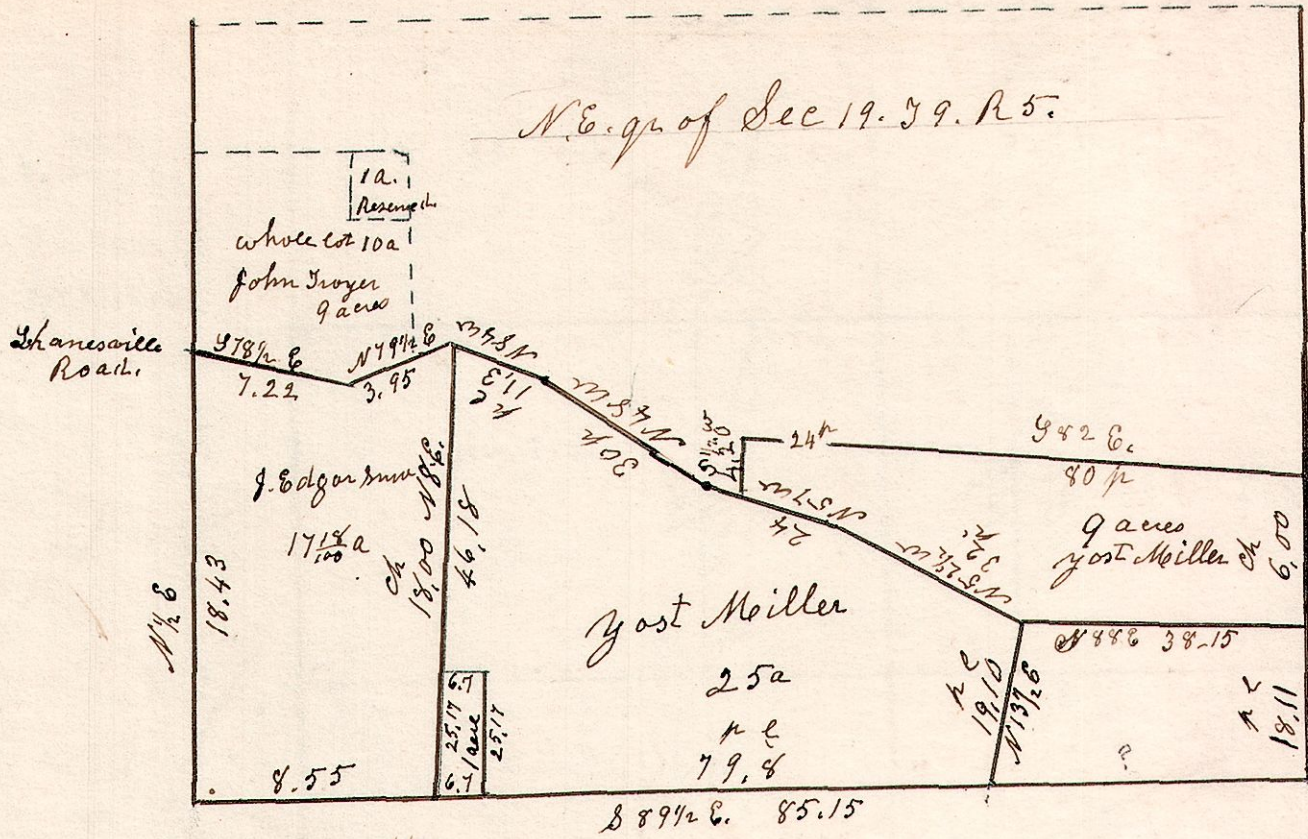 N.E. qr of Sec 19. T 9. R 5.
1 a.
Reserved
whole lot 10a
John Troyer
9 acres
Shanesville
Road.
S78½ E
7.22
N79½ E
3.95
N 84 W
11,3
N 48 W
30 p
S ½ W
4,20
24 p
S 82 E.
80 p
N 57 W
24
N 52½ W
32
9 acres
Yost Miller
ch
6,00
J. Edgar Snow
17 18/100 a
ch
18,00
46,18
N½ E
18.43
Yost Miller
25a
p l
79,8
p l
19,10
N 13
N 88 E 38-15
p l
18.11
?
6.7
25.17
1 acre
25.17
6.7
8.55
S 89½ E. 85.15